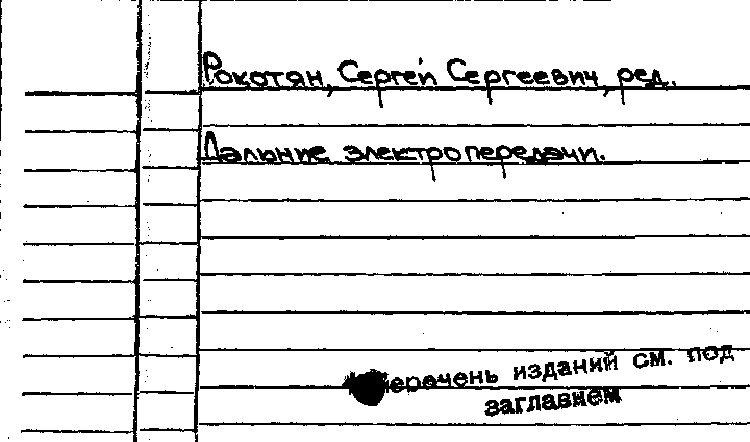 Рокотян, Сергей Сергеевич, ред.
Дальние электропередачи.
Перечень изданий см. под
заглавием